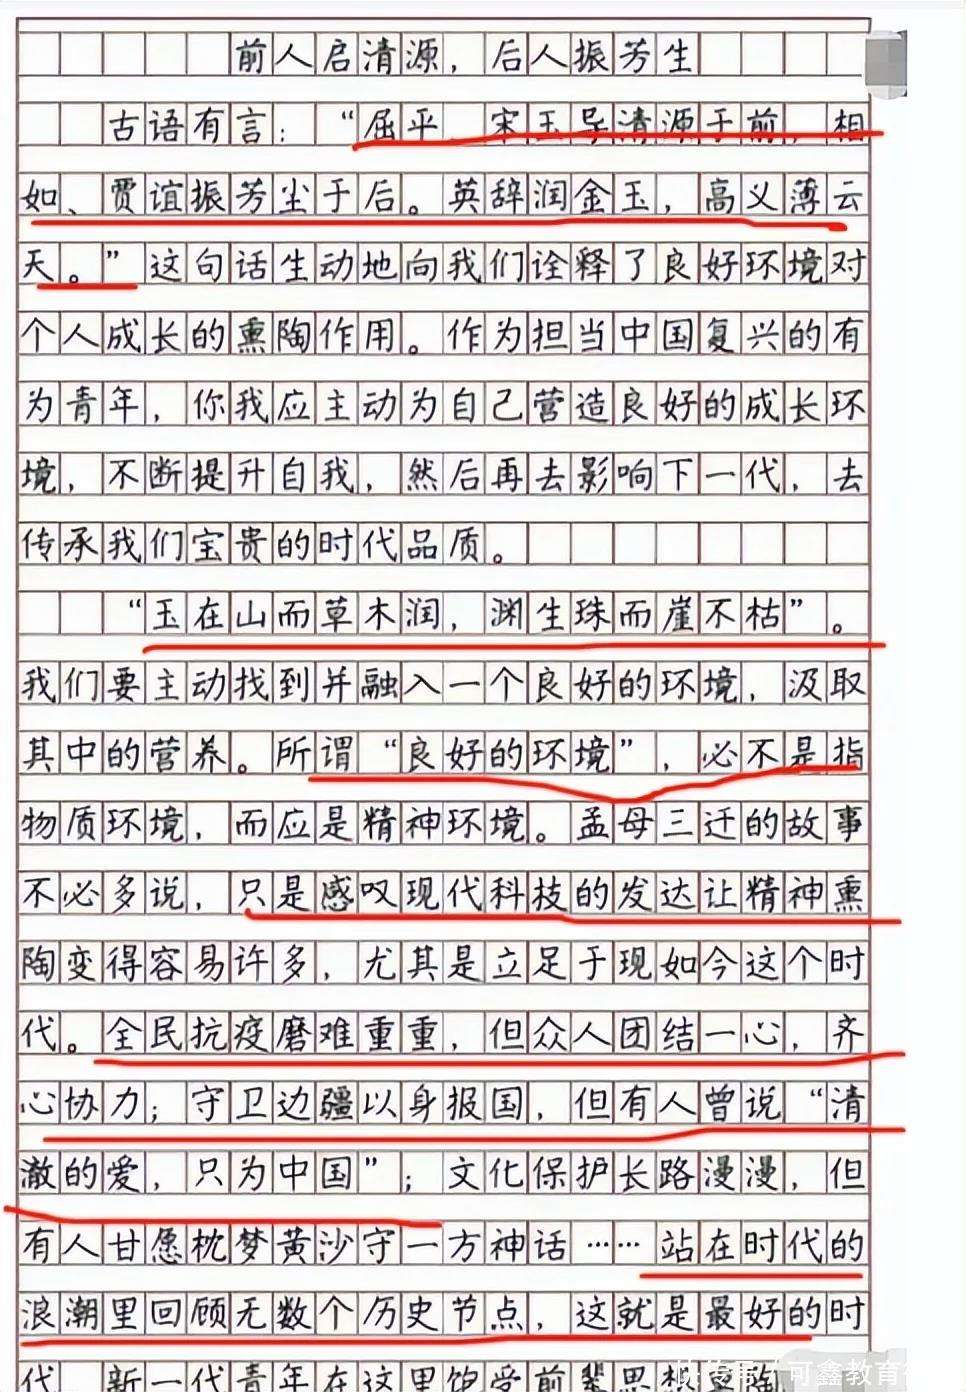 前人启清源，后人振芳生
古语有言：“屈平、宋玉导清源于前，相
如、贾谊振芳尘于后。英辞润金玉，高义薄云
天。”这句话生动地向我们诠释了良好环境对
个人成长的熏陶作用。作为担当中国复兴的有
为青年，你我应主动为自己营造良好的成长环
境，不断提升自我，然后再去影响下一代，去
传承我们宝贵的时代品质。
“玉在山而草木润，渊生珠而崖不枯”。
我们要主动找到并融入一个良好的环境，汲取
其中的营养。所谓“良好的环境”，必不是指
物质环境，而应是精神环境。孟母三迁的故事
不必多说，只是感叹现代科技的发达让精神熏
陶变得容易许多，尤其是立足于现如今这个时
代。全民抗疫磨难重重，但众人团结一心，齐
心协力；守卫边疆以身报国，但有人曾说“清
澈的爱，只为中国”；文化保护长路漫漫，但
有人甘愿枕梦黄沙守一方神话……站在时代的
浪潮里回顾无数个历史节点，这就是最好的时
代 新一代青年在这里饱受前辈思想
可鑫教育